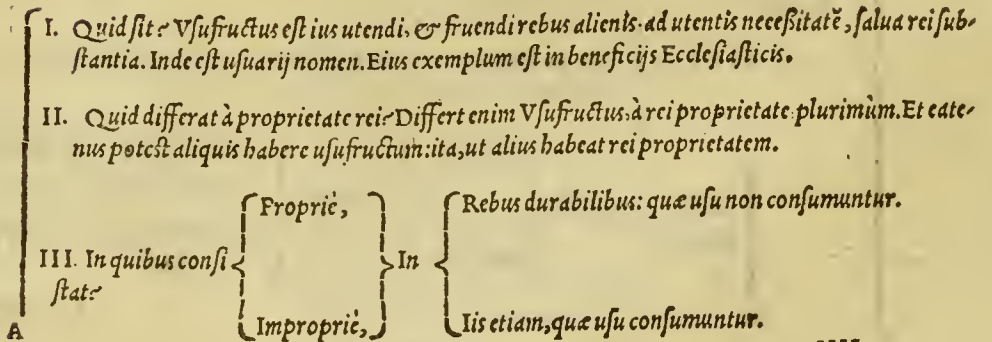 I. Quid ſit? Vſufructus eſt ius utendi, & fruendi rebus alienis ad utentis neceßitatē, ſalua rei ſub-
ſtantia. Inde eſt uſuarij nomen. Eius exemplum eſt in beneficijs Eccleſiaſticis.
II. Quid differat à proprietate rei? Differt enim Vſufructus, à rei proprietate plurimùm. Et eate-
nus poteſt aliquis habere uſufructum: ita, ut alius habeat rei proprietatem.
Propriè,
Rebus durabilibus: quæ uſu non conſumuntur.
III. In quibus conſi
In
ſtat?
Impropriè,
Iis etiam, quæ uſu conſumuntur.
A